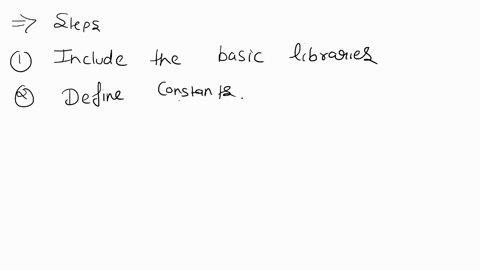 ⇒ Steps
① Include the basic libraries
② Define Constants.